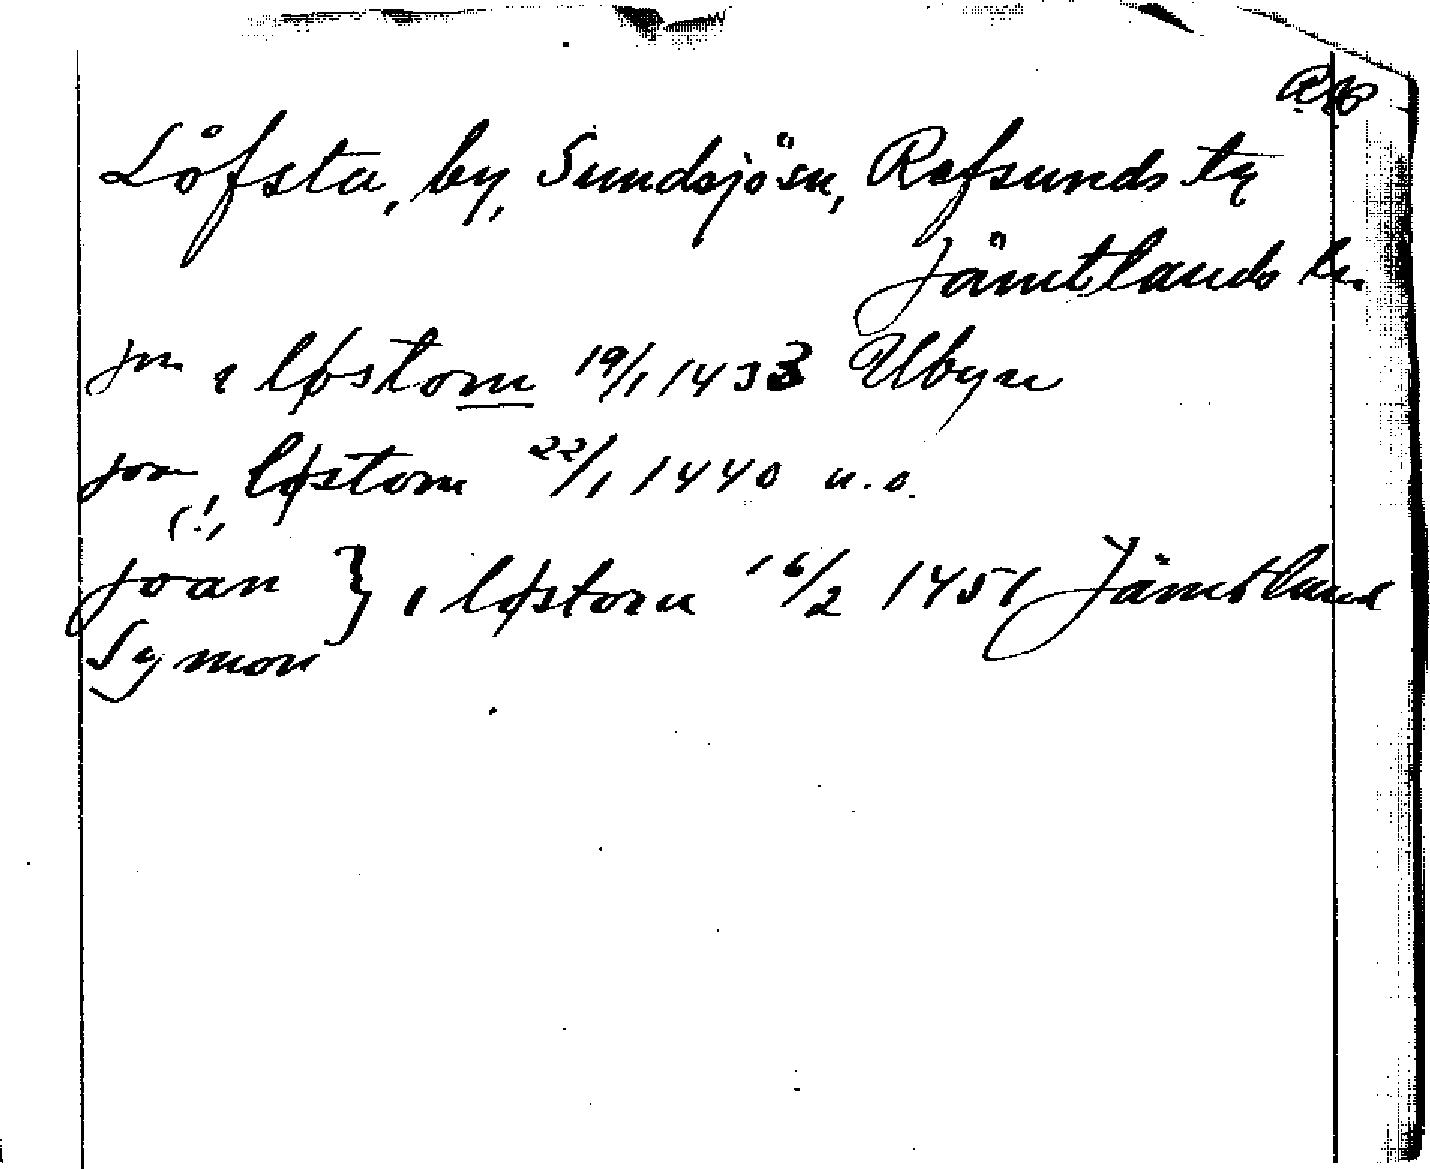 Löfsta, by, Sundsjö sn, Refsunds tg
Jämtlands l.
jm i løstom 19/1 1433 Utbyn
jon, løstom 22/1 1440 u.o.
(!)
joan } i løstom 16/2 1451 Jämtland
Symon